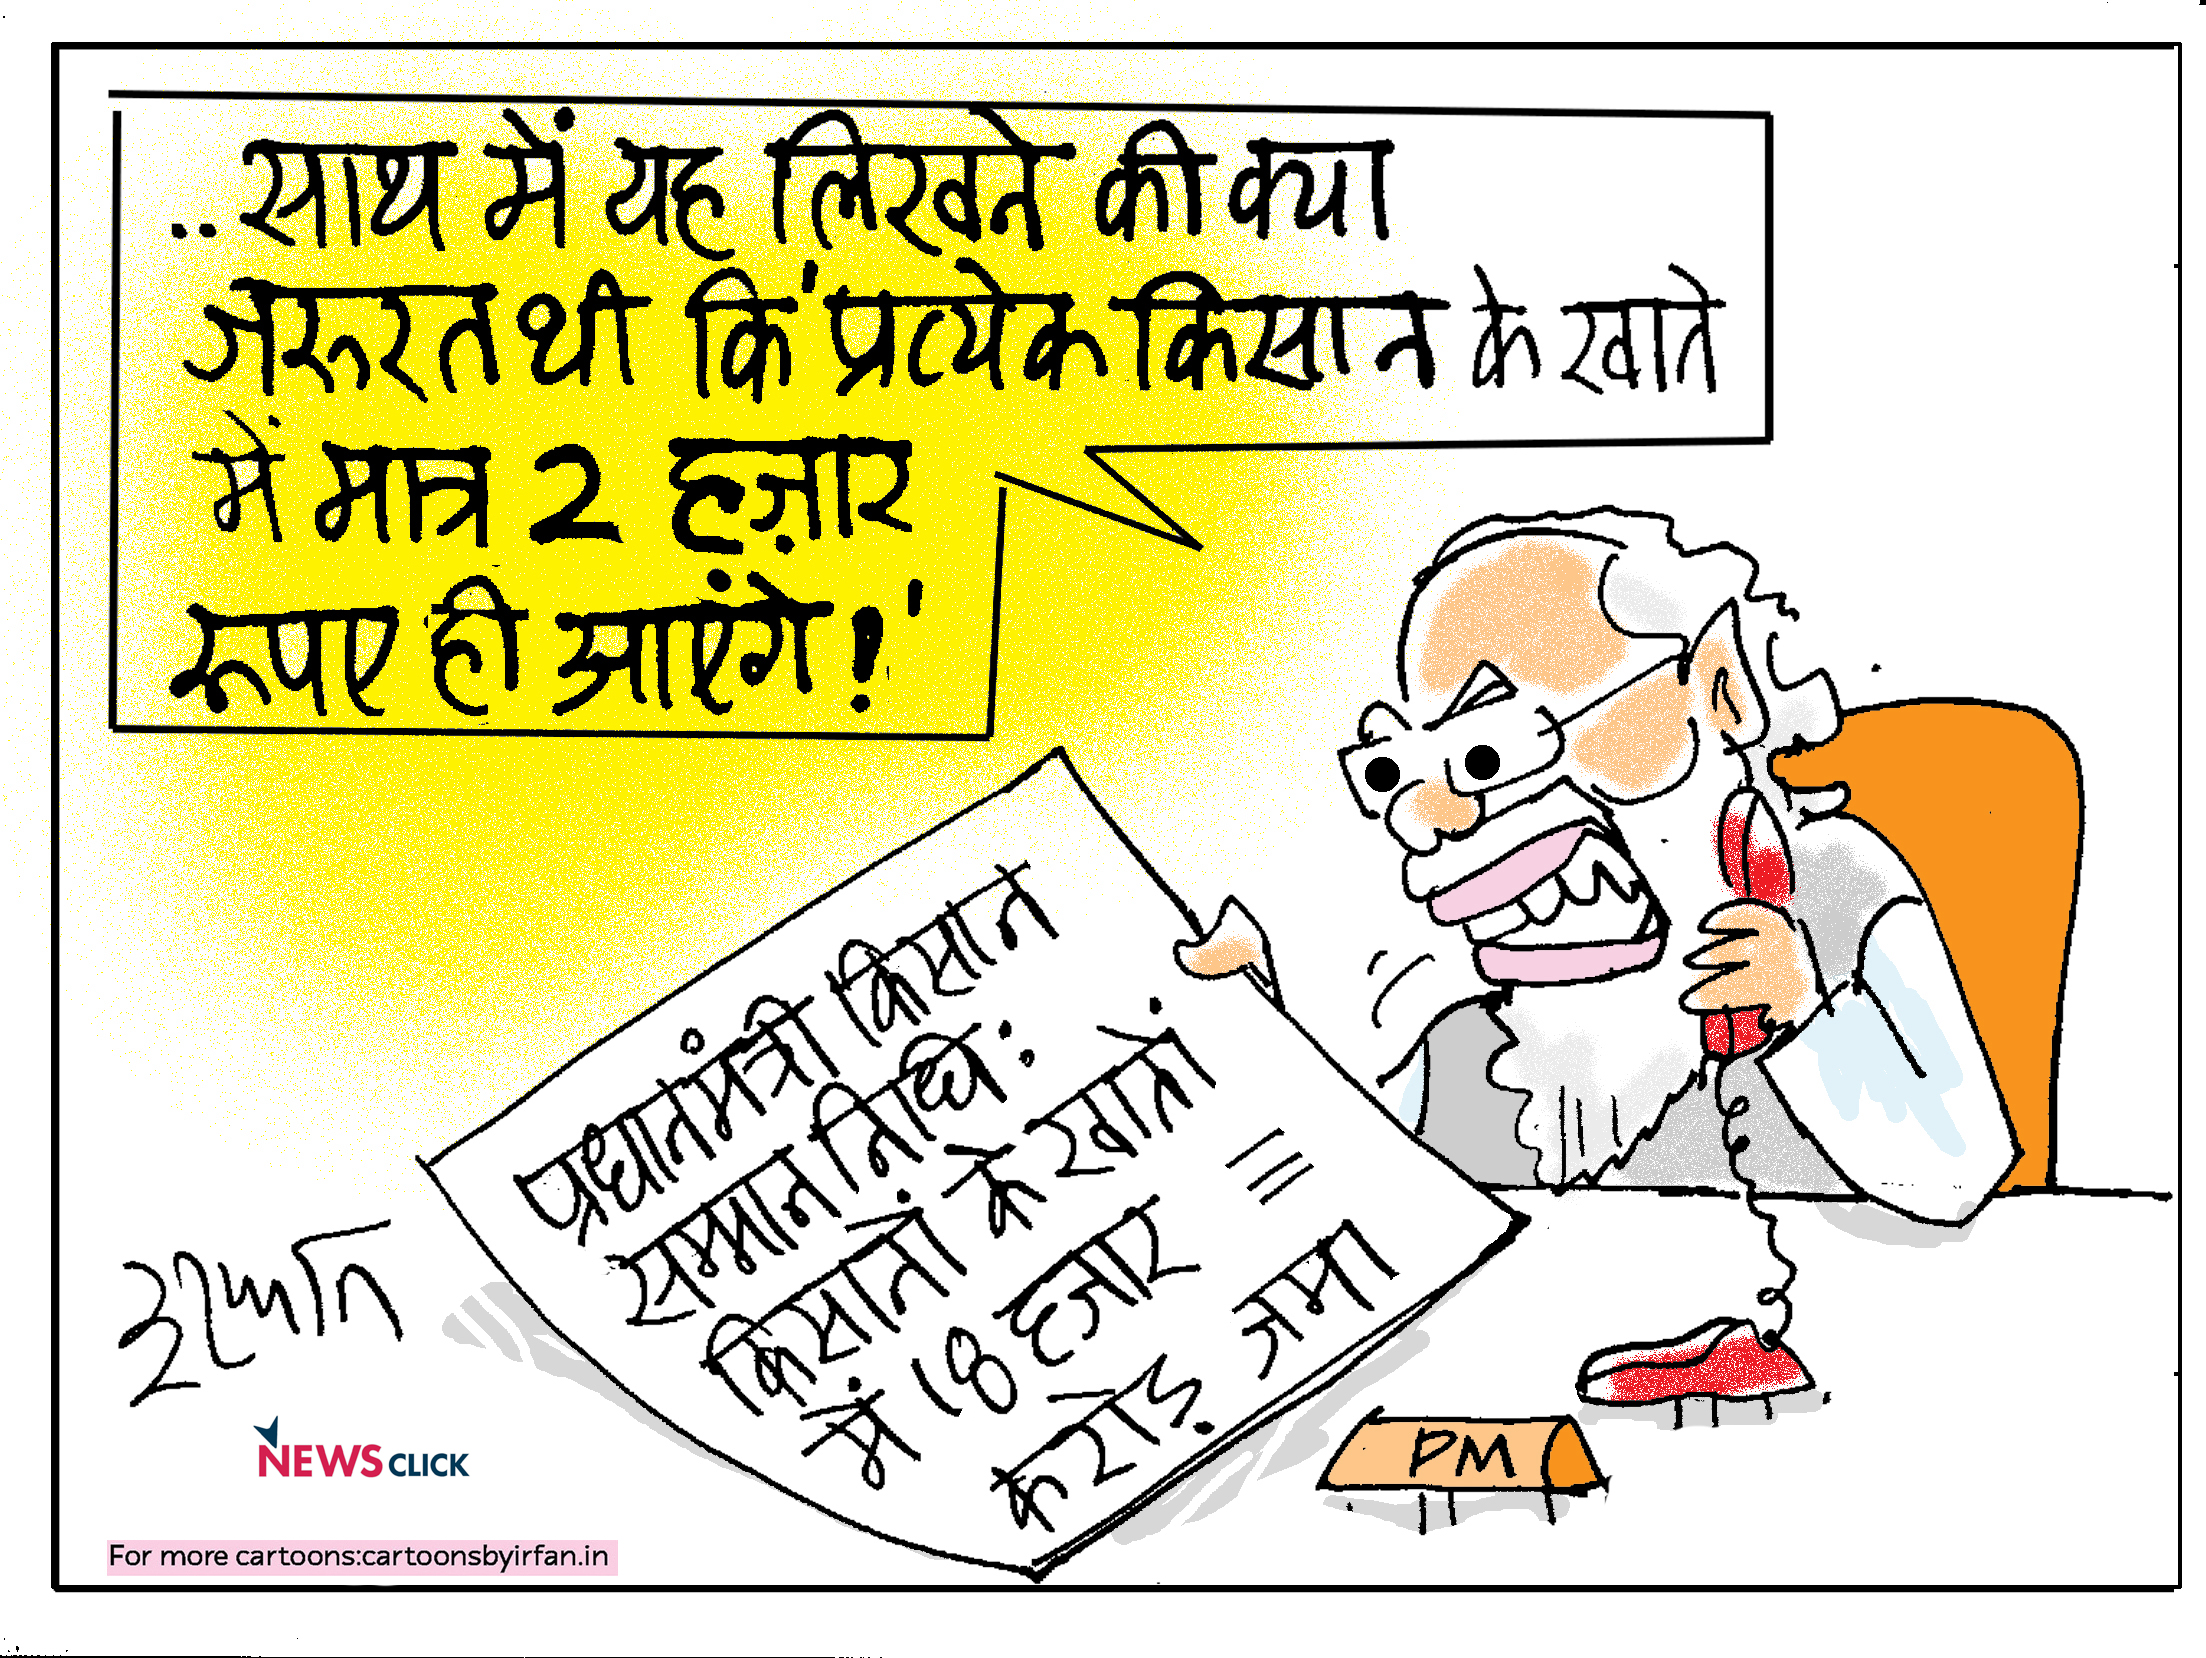 ..साथ में यह लिखने की क्या
ज़रुरत थी कि 'प्रत्येक किसान के खाते
में मात्र 2 हज़ार
रूपए ही आएंगे!'
प्रधानमंत्री किसान
सम्मान निधि:
किसानों के खातों
में 18 हजार
करोड़ जमा
PM
इरफान
NEWSCLICK
For more cartoons:cartoonsbyirfan.in